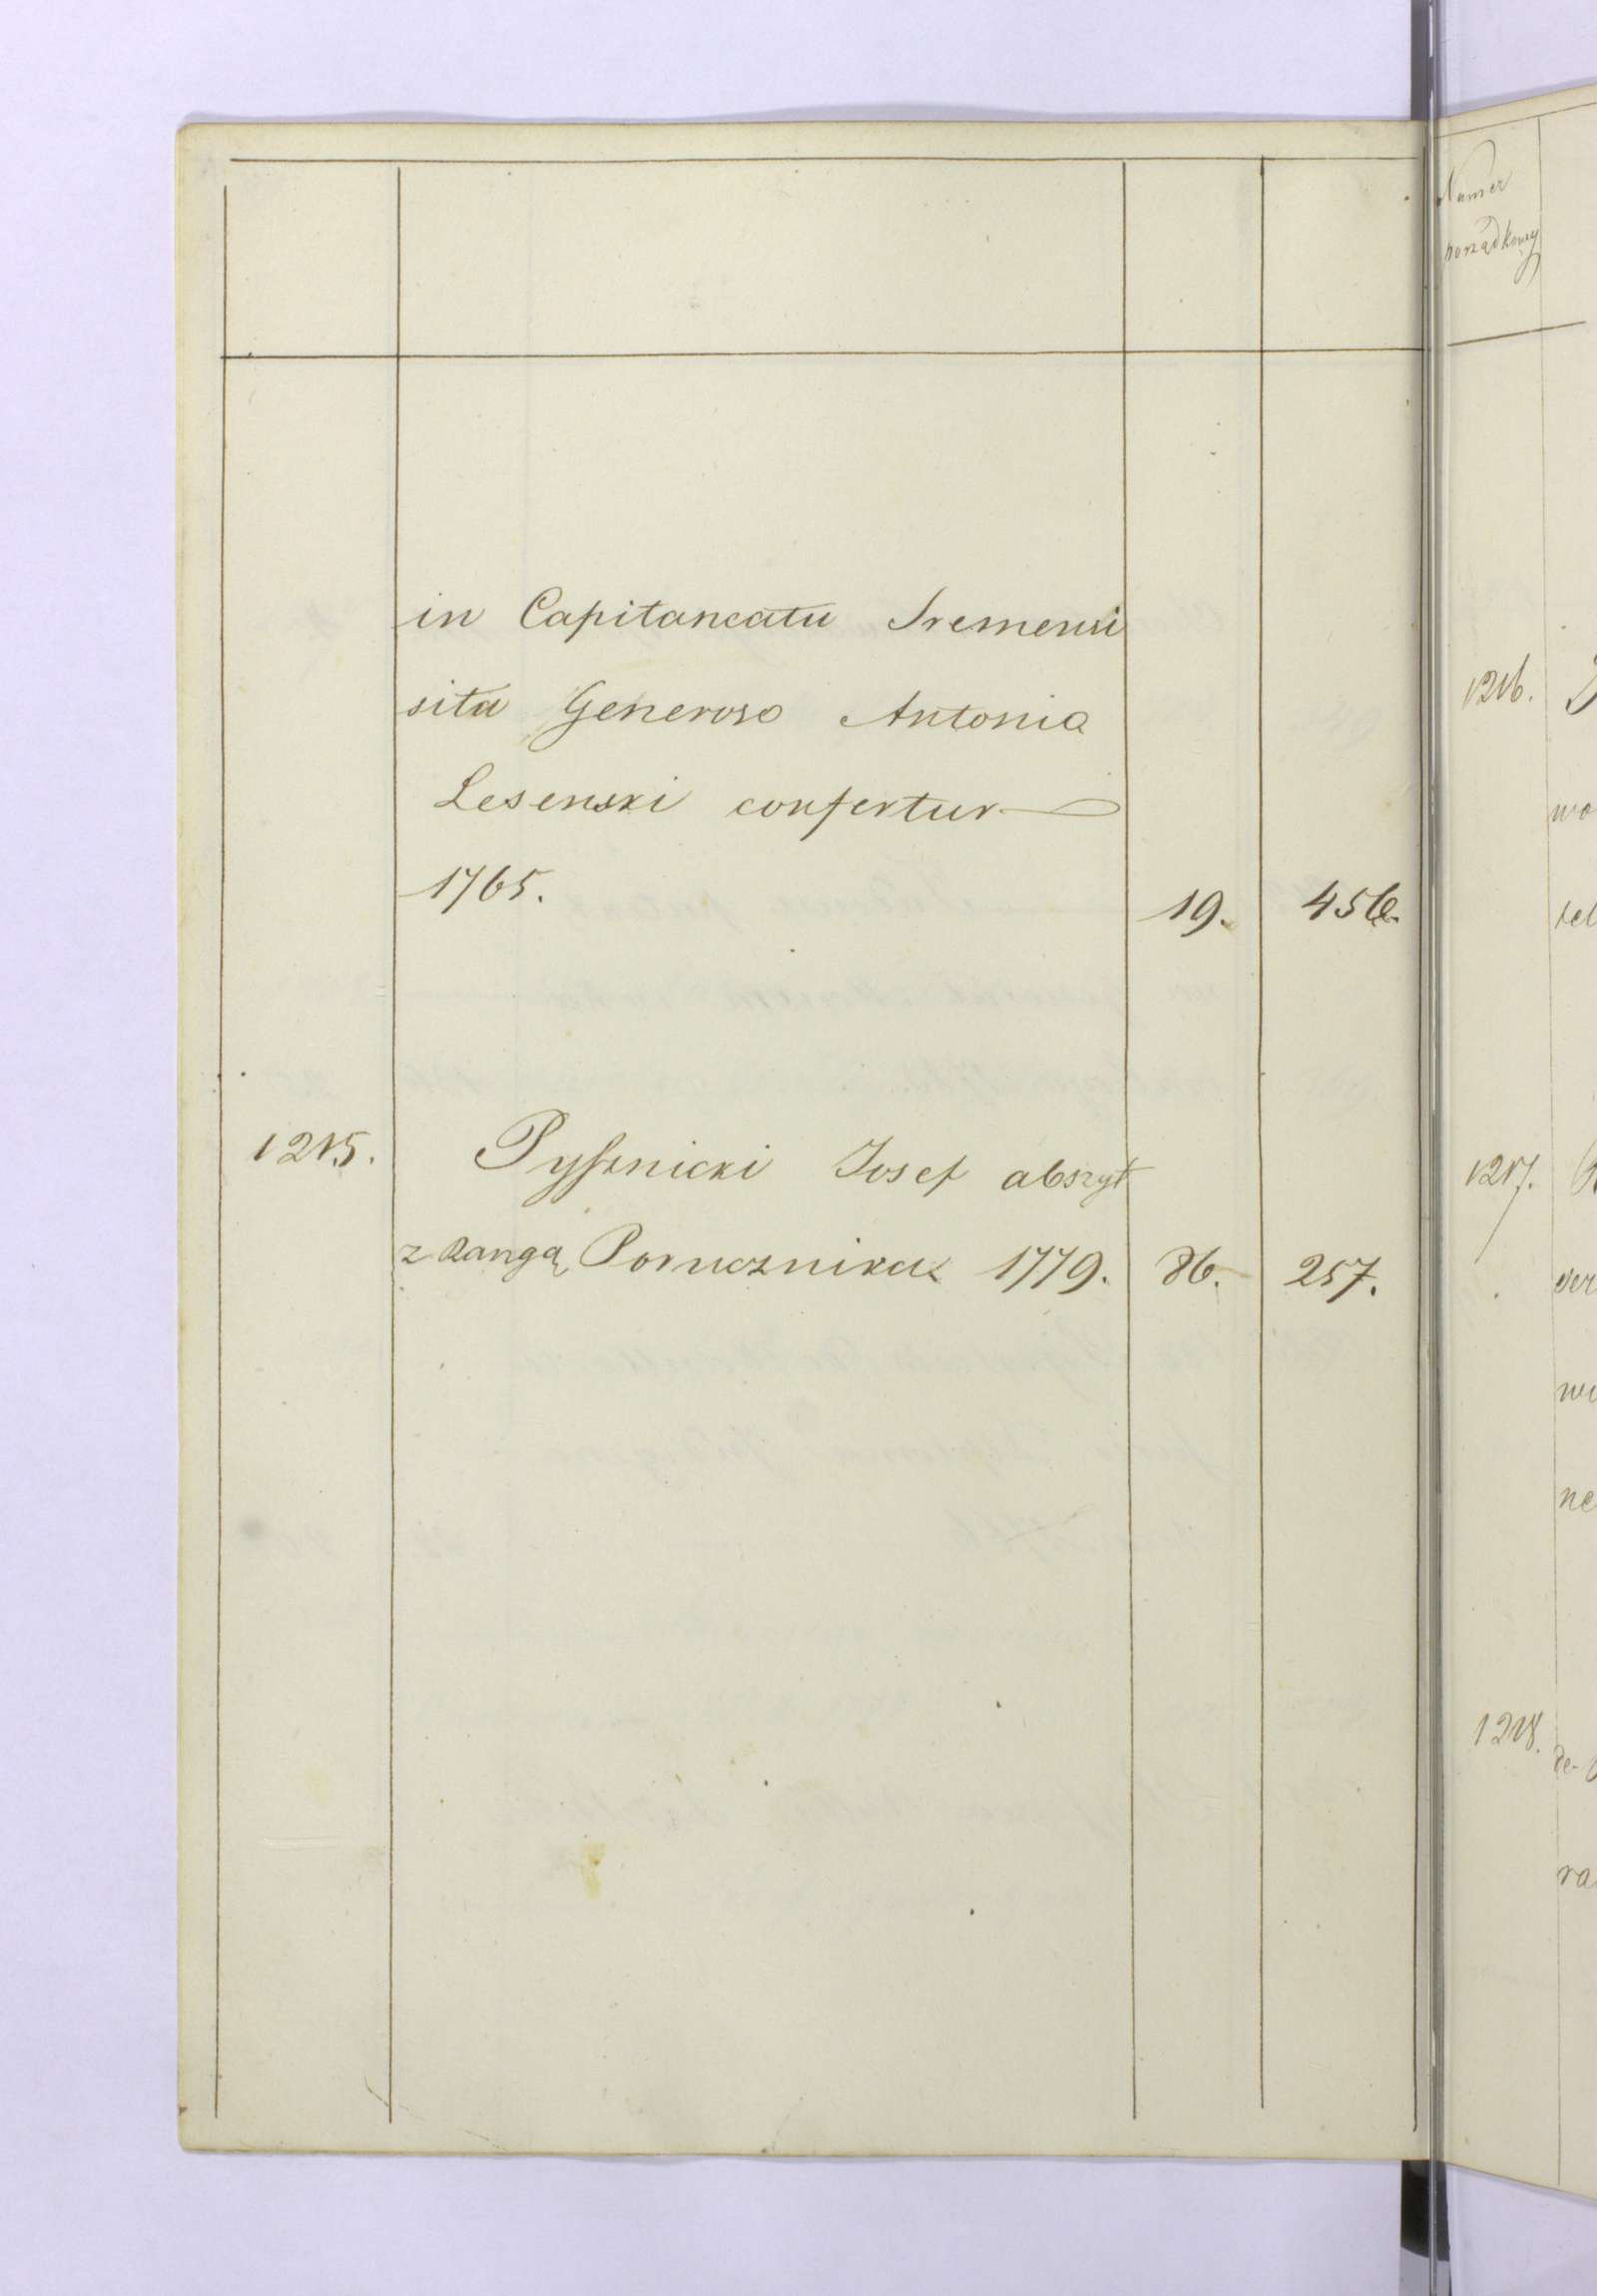 in Capitaneatu Sremensi
sita Generoso Antonia
Lesenski confertur
1765. 19. 456.
1215. Pyſznicki Josef abszyt
z Rangą Porucznika 1779. 86. 257.
Numer
porządkowy
1216.
1217.
1218.